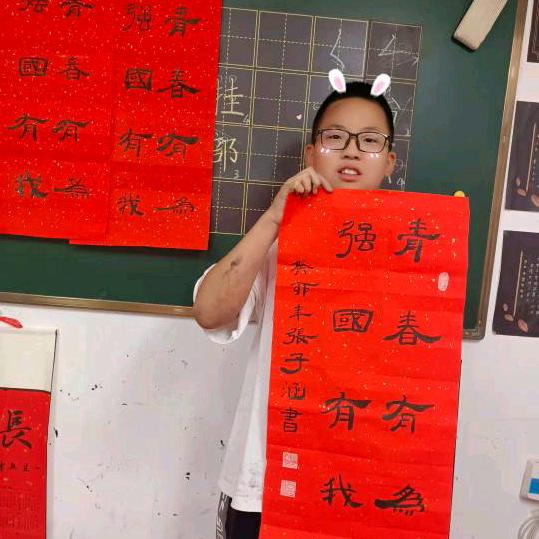 青春有為
强國有我
癸卯年張子涵書
青春有為
强國有我
青春有為
强國有我
長